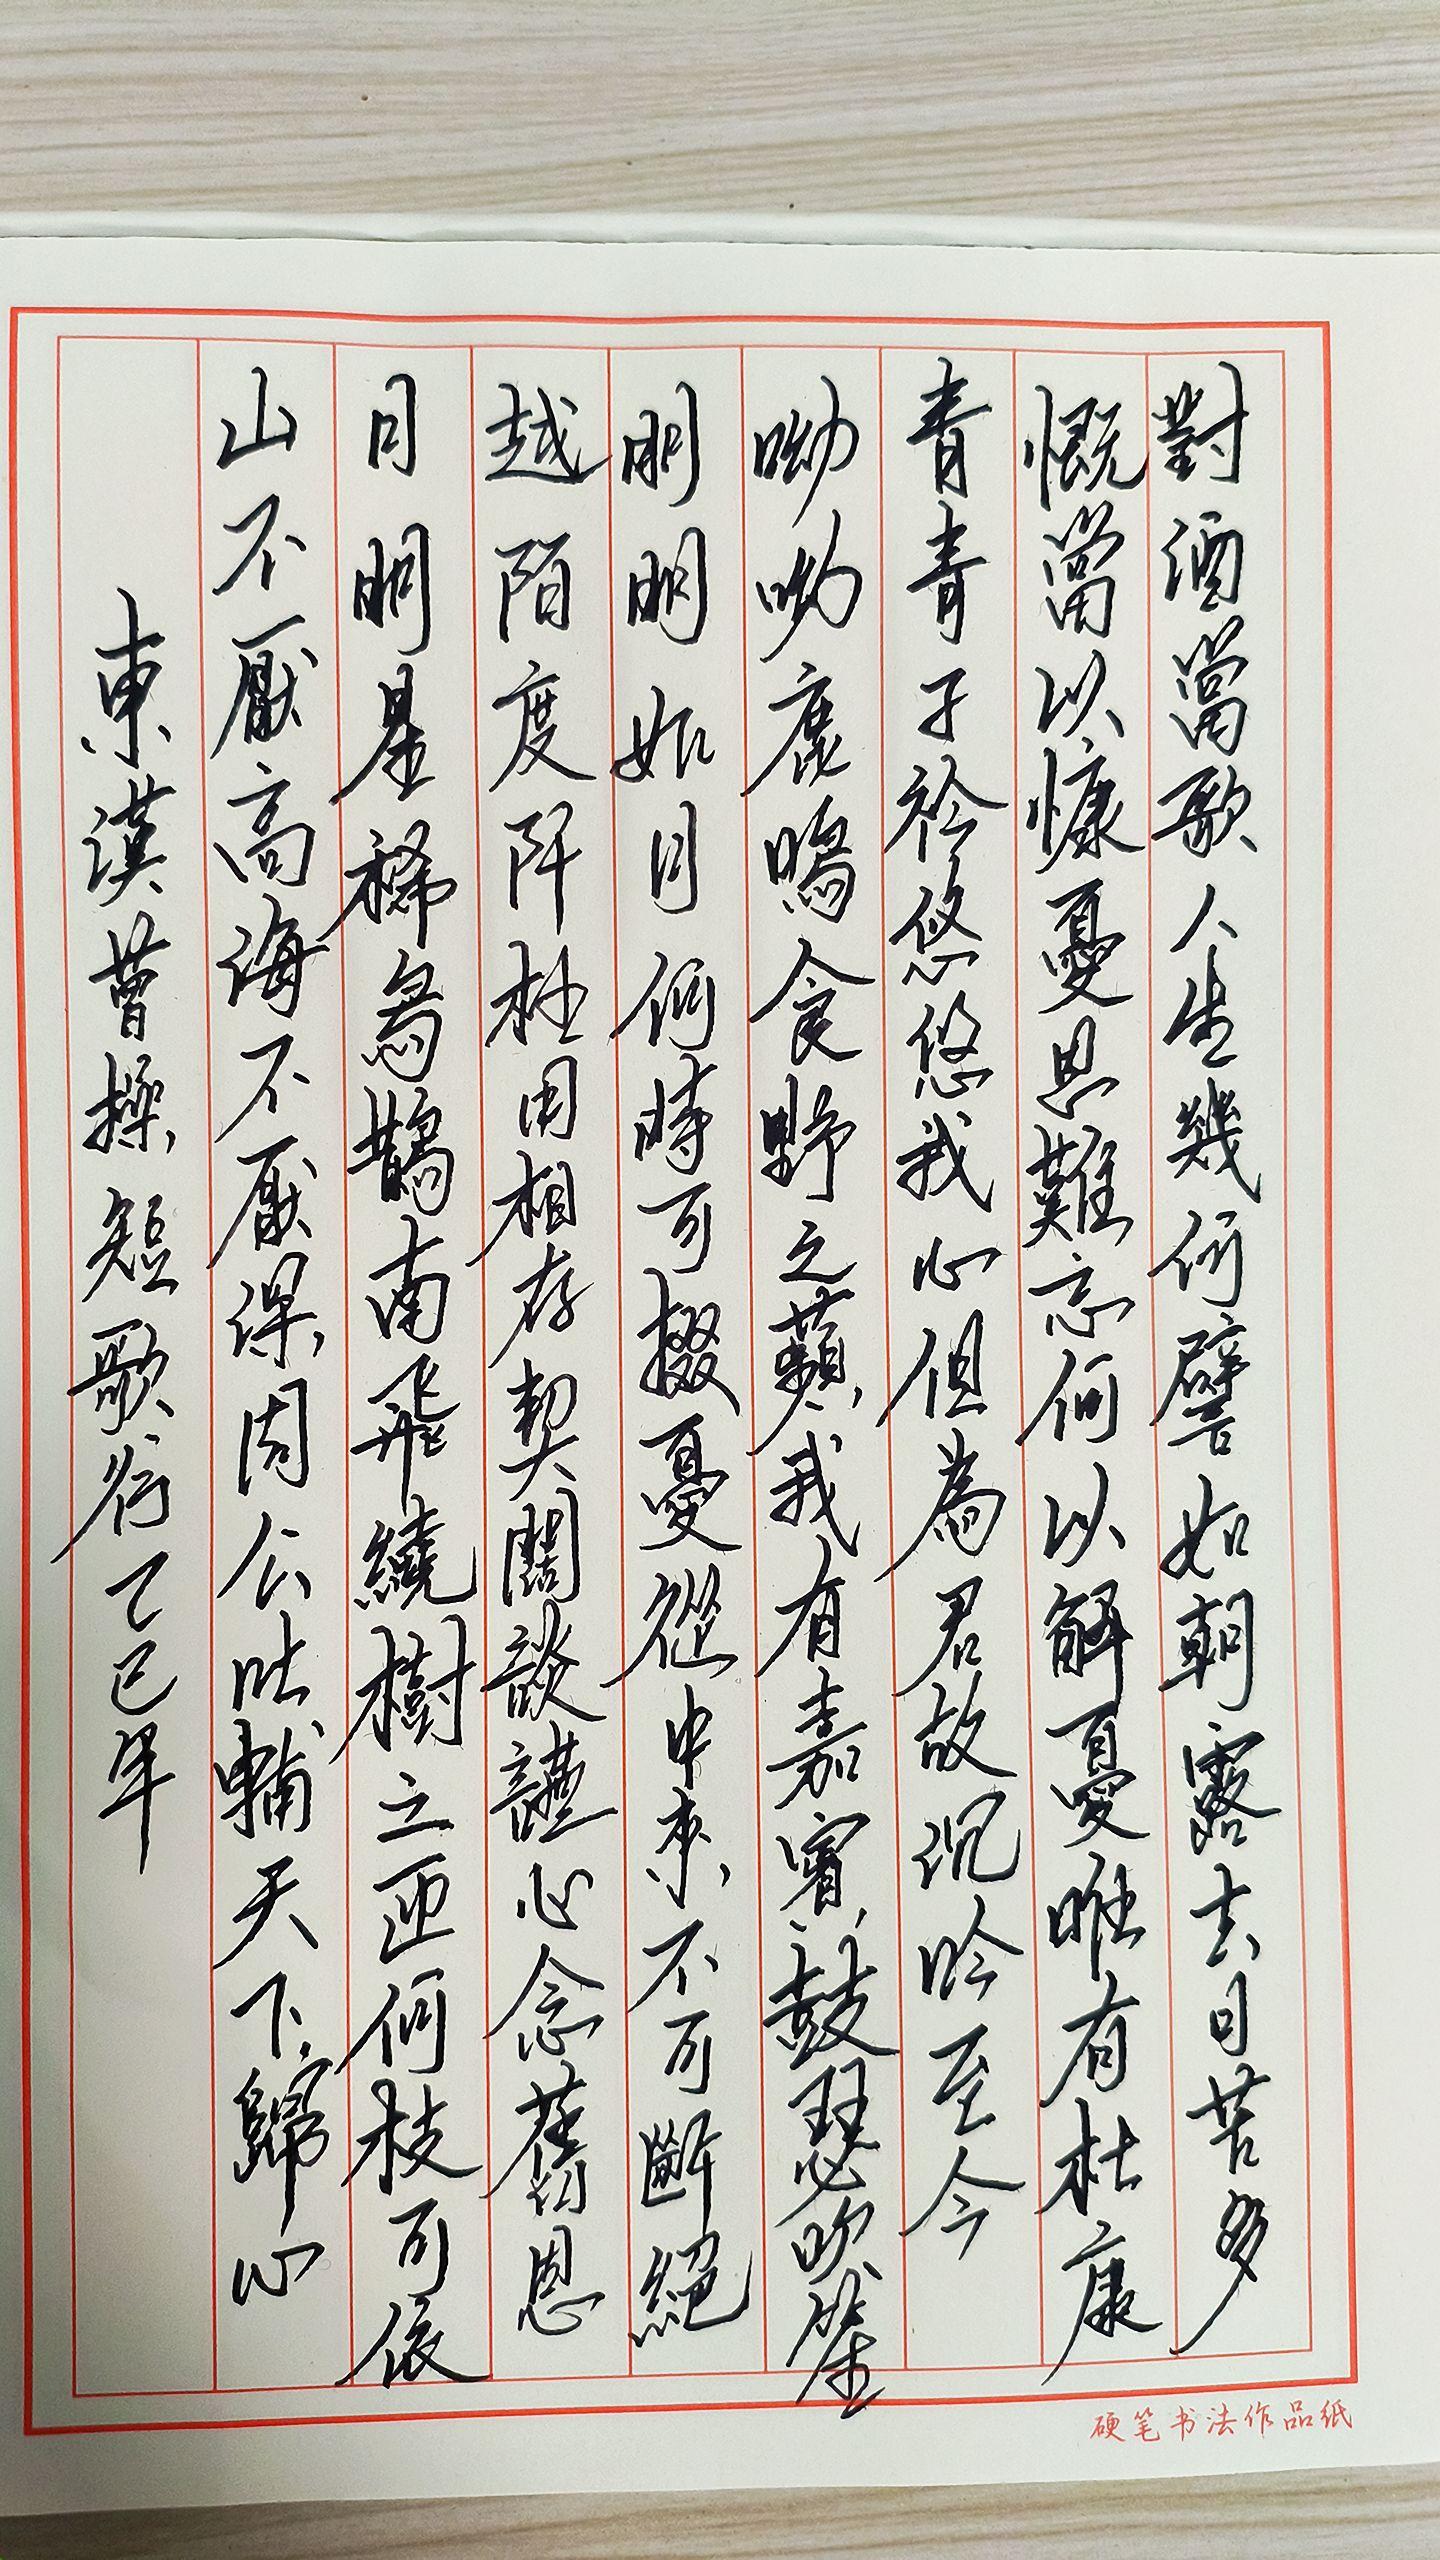 對酒當歌人生幾何譬如朝露去日苦多
慨當以慷憂思難忘何以解憂唯有杜康
青青子衿悠悠我心但為君故沉吟至今
呦呦鹿鳴食野之蘋我有嘉賓鼓瑟吹笙
明明如月何時可掇憂從中來不可斷絕
越陌度阡枉用相存契闊談讌心念舊恩
月明星稀烏鵲南飛繞樹三匝何枝可依
山不厭高海不厭深周公吐哺天下歸心
東漢曹操短歌行乙巳年
硬笔书法作品纸